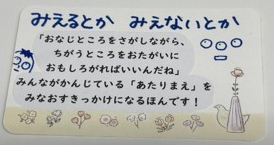 みえるとか みえないとか
「おなじところをさがしながら、
ちがうところをおたがいに
おもしろがればいいんだね」
みんながかんじている「あたりまえ」を
みなおすきっかけになるほんです！